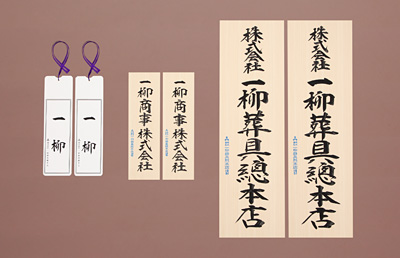 一柳
一柳
一柳商事株式会社
一柳商事株式会社
株式会社
一柳葬具總本店
株式会社
一柳葬具總本店